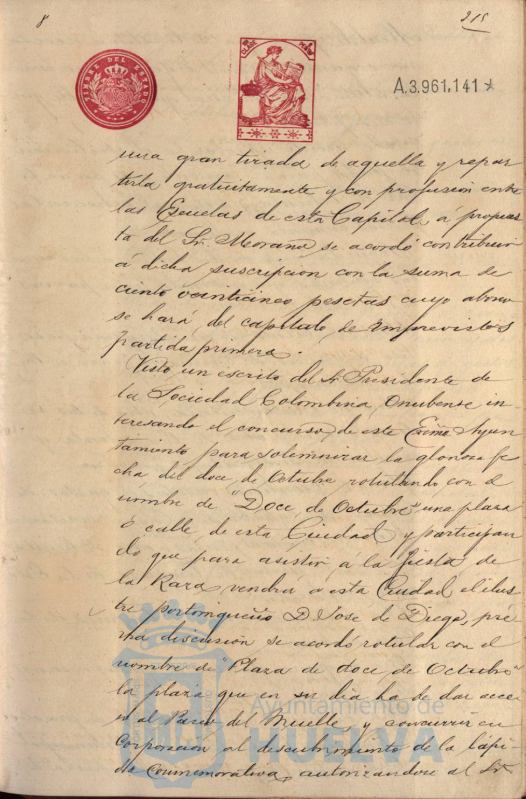 8
215
TIMBRE DEL ESTADO
A.3.961,141
una gran tirada de aquella y repar
tirla gratuitamente y con profusion entre
las Escuelas de esta Capital, á propues
ta del Sr. Moraña se acordó contribuir
á dicha suscripcion con la suma de
ciento veinticinco pesetas cuyo abono
se hará del capitulo de Imprevistos
partida primera.
Visto un escrito del Sr. Presidente de
la Sociedad Colombina Onubense in-
teresando el concurso de este Exmo Ayun
tamiento para solemnizar la gloriosa fe
cha del doce de Octubre rotulando con el
nombre de "Doce de Octubre" una plaza
ó calle de esta Ciudad y participan
do que para asistir á la fiesta de
la Raza vendrá á esta Ciudad el ilus
tre portorriqueño D. Jose de Diego, pré
via discusion se acordó rotular con el
nombre de "Plaza de doce de Octubre"
la plaza que en su dia ha de dar acce
so al Paseo del Muelle y concurrir en
Corporación al descubrimiento de la lápi
da conmemorativa, autorizandose al Sr.
Ayuntamiento de
HUELVA